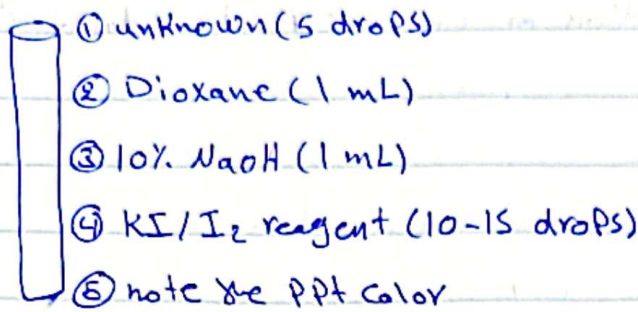 ① unknown (5 drops)
② Dioxane (1 mL)
③ 10% NaOH (1 mL)
④ KI/I₂ reagent (10-15 drops)
⑤ note the ppt color